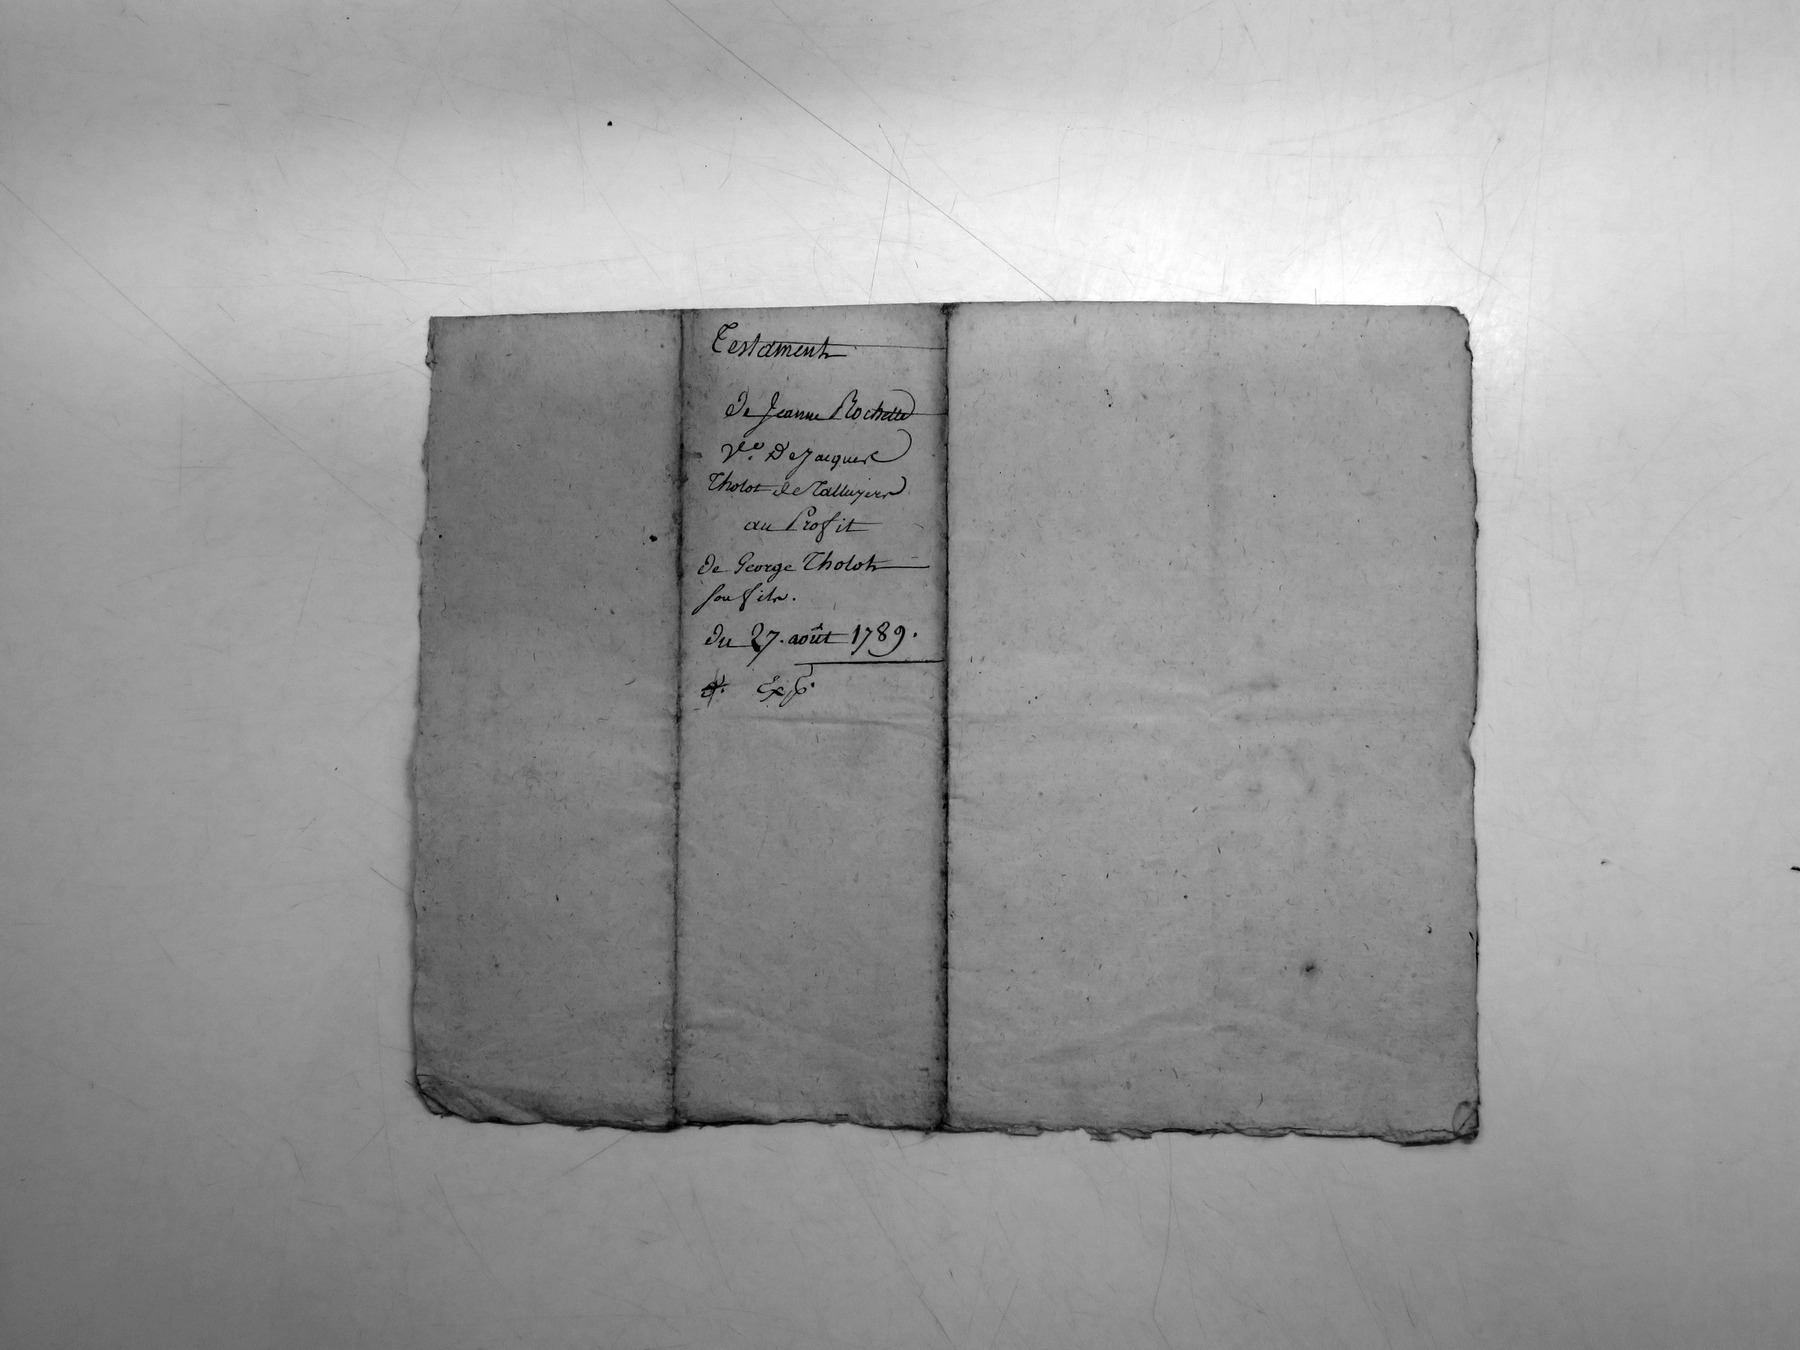 Testament
De Jeanne Rochette
Ve. De Jacques
Tholot de Talluyers
au Profit
De George Tholot
son fils.
Du 27. août 1789.
Exp.